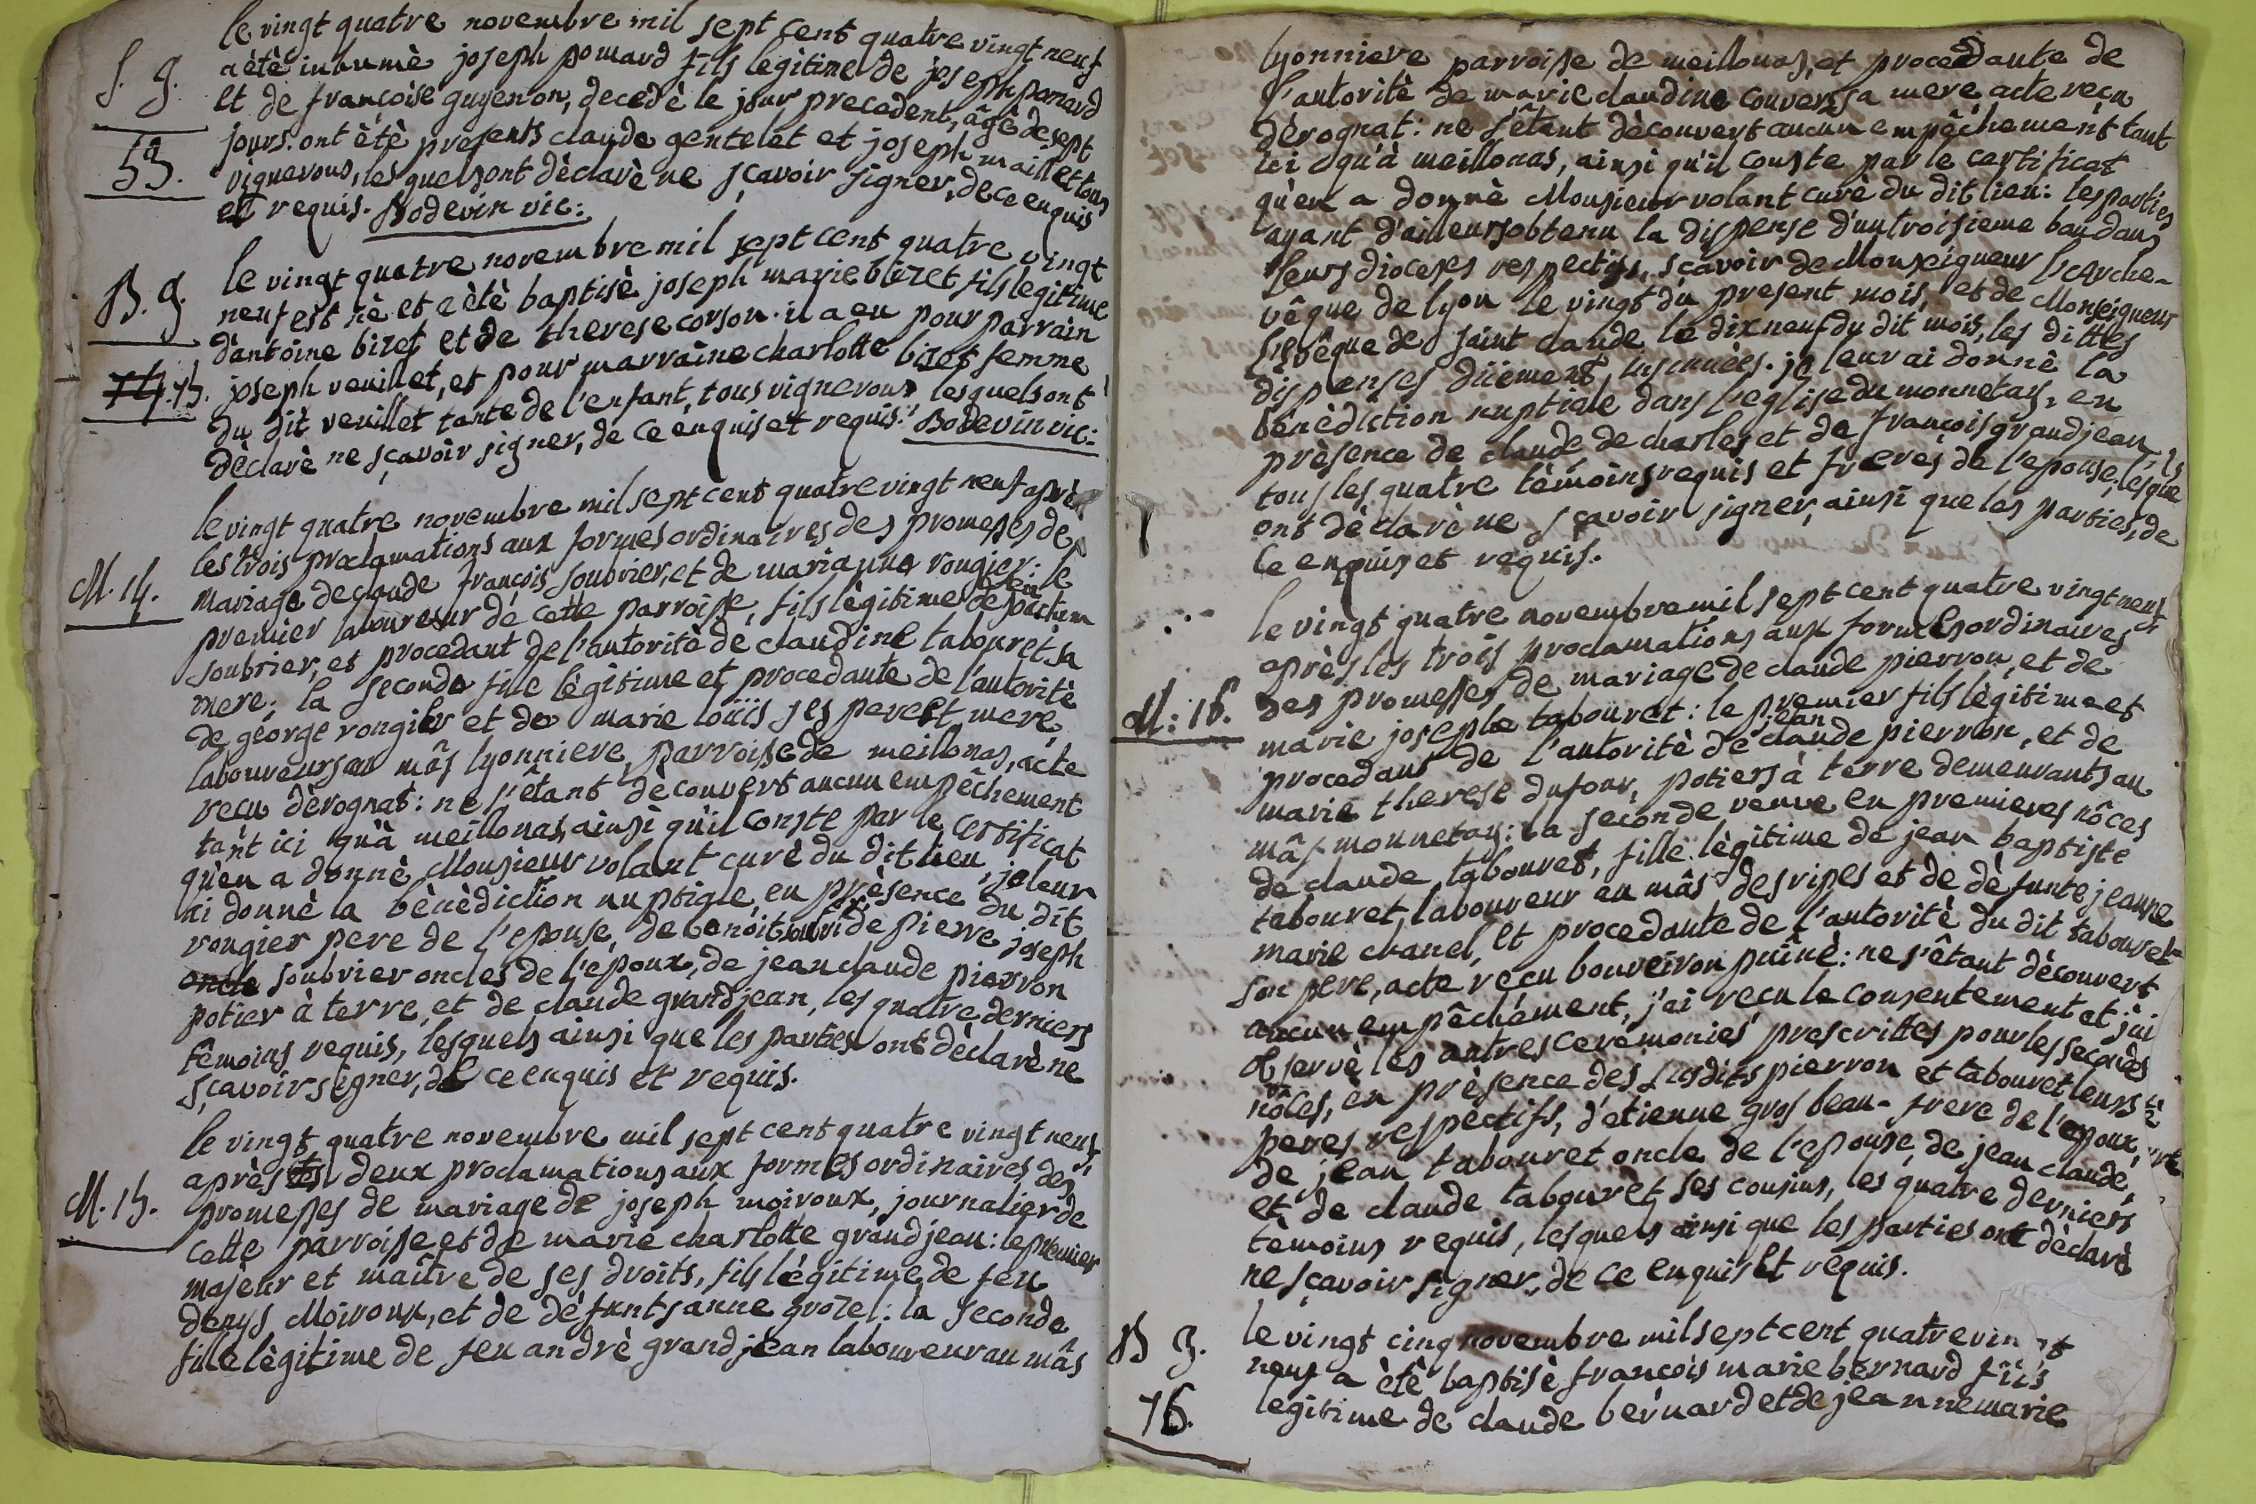 le vingt quatre novembre mil sept cent quatre vingt neuf
S. g.
a été inhumè joseph pomard fils lègitime de joseph pomard
et de françoise guyenon, decèdè le jour precedent, âgè de sept
53.
jours. ont ètè presents claude gentelet et joseph maillet tous
vignerons, les quels ont dèclarè ne sçavoir signer, de ce enquis
et requis. Bodevin vic:
le vingt quatre novembre mil sept cent quatre vingt
B. g.
neuf est nè et a ètè baptisè joseph marie bizet fils lègitime
d'antoine bizet et de therese corson. il a eu pour parrain
75.
joseph veuillet, et pour marraine charlotte bizet femme
du dit veuillet tante de l'enfant, tous vignerons lesquels ont
dèclarè ne sçavoir signer, de ce enquis et requis. Bodevin vic:
le vingt quatre novembre mil sept cent quatre vingt neuf après
les trois proclamations aux formes ordinaires des promesses de
M. 14.
mariage de claude françois soubrier, et de marianne rougier: le
premier laboureur de cette parroisse, fils lègitime de feu
soubrier, et procedant de l'autoritè de claudine tabouret sa
mere; la seconde fille lègitime et procedante de l'autoritè
de george rougier et de marie loüis ses pere et mere,
laboureurs au mâs lyonniere, parroisse de meillonas, acte
recu dèrognat: ne s'êtant dècouvert aucun empêchement
tant ici qu'à meillonas, ainsi qu'il conste par le certificat
qu'en a donnè Monsieur volant curè du dit lieu, je leur
ai donnè la bènèdiction nuptiale, en prèsence du dit
rougier pere de l'epouse, de benoit et de pierre joseph
oncle soubrier oncles de l'epoux, de jean claude pierron
potier à terre, et de claude grandjean, les quatre derniers
tèmoins requis, lesquels ainsi que les parties ont dèclarè ne
sçavoir signer, de ce enquis et requis.
le vingt quatre novembre mil sept cent quatre vingt neuf
après les deux proclamations aux formes ordinaires des
M. 15.
promesses de mariage de joseph moiroux, journalier de
cette parroisse et de marie charlotte grandjean: le premier
majeur et maître de ses droits, fils lègitime de feu
denys Moiroux, et de dèfunts anne grozel: la seconde
fille lègitime de feu andrè grandjean laboureur au mâs
lyonniere parroisse de meillonas, et procedante de
l'autoritè de marie claudine convers sa mere acte recu
dèrognat: ne s'êtant dècouvert aucun empêchement tant
ici qu'à meillonas, ainsi qu'il conste par le certificat
qu'en a donnè Monsieur volant curè du dit lieu: les parties
ayant d'ailleurs obtenu la dispense d'un troisieme ban dans
leurs dioceses respectifs, sçavoir de Monseigneur l'arche-
vêque de lyon le vingt du present mois, et de Monseigneur
l'evêque de saint claude le dix neuf du dit mois, les dittes
dispenses düement insinuèes. je leur ai donnè la
bènèdiction nuptiale dans l'eglise du monnetay, en
prèsence de claude de charles et de françois grandjean
tous les quatre tèmoins requis et freres de l'epouse, lesquels
ont dèclarè ne sçavoir signer, ainsi que les parties, de
ce enquis et requis.
le vingt quatre novembre mil sept cent quatre vingt neuf
après les trois proclamations aux formes ordinaires
des promesses de mariage de claude pierron, et de
M: 16.
marie josephe tabouret: le premier fils lègitime et
procedant de l'autoritè de jean claude pierron, et de
marie therese dufour, potiers à terre demeurants au
mâs monnetay: la seconde veuve en premieres nôces
de claude tabouret, fille lègitime de jean baptiste
tabouret, laboureur au mâs des ripes et de dèfunte jeanne
marie chanel, et procedante de l'autoritè du dit tabouret
son pere, acte recu bouveiron puînè: ne s'êtant dècouvert
aucun empêchement, j'ai recu le consentement et j'ai
observè les autres ceremonies prescrittes pour les secondes
nôces, en prèsence des susdits pierron et tabouret leurs
peres respectifs, d'etienne gros beau-frere de l'epoux,
de jean tabouret oncle de l'epouse, de jean claude,
et de claude tabouret ses cousins, les quatre derniers
tèmoins requis, lesquels ainsi que les parties ont dèclarè
ne sçavoir signer, de ce enquis et requis.
B g.
le vingt cinq novembre mil sept cent quatre vingt
neuf a ètè baptisè françois marie bernard fils
76.
legitime de claude bernard et de jeanne marie